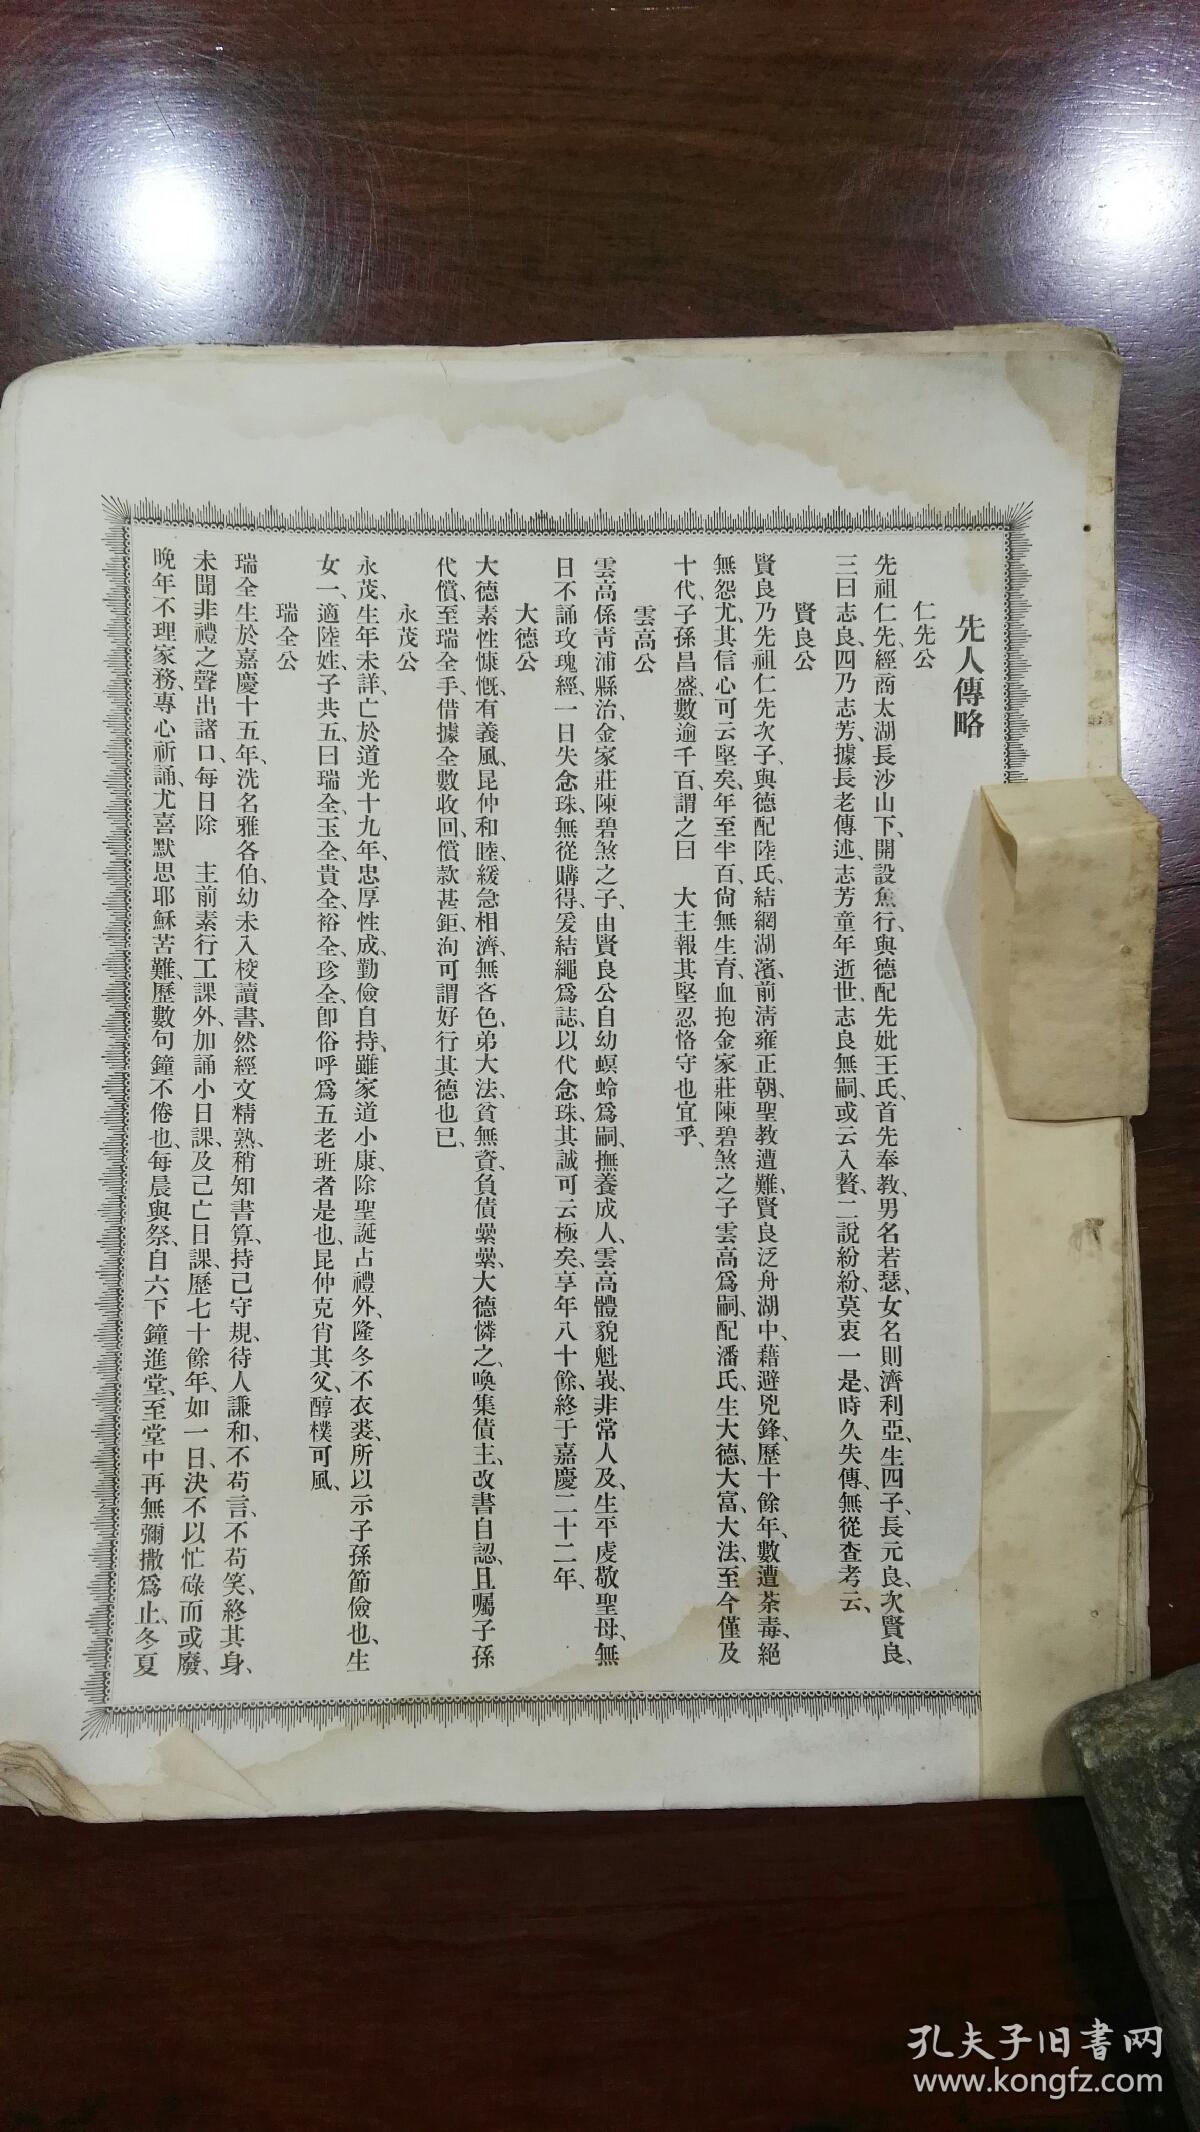 先人傳略
仁先公
先祖仁先、經商太湖長沙山下、開設魚行、與德配先妣王氏、首先奉教、男名若瑟、女名則濟利亞、生四子、長元良、次賢良、
三曰志良、四乃志芳、據長老傳述、志芳童年逝世、志良無嗣、或云入贅、二說紛紛、莫衷一是、時久失傳、無從查考云、
賢良公
賢良乃先祖仁先次子、與德配陸氏、結網湖濱、前淸雍正朝、聖教遭難、賢良泛舟湖中、藉避兇鋒、歷十餘年、數遭荼毒、絕
無怨尤、其信心可云堅矣、年至半百、尙無生育、血抱金家莊陳碧煞之子雲高爲嗣、配潘氏、生大德、大富、大法、至今僅及
十代、子孫昌盛、數逾千百、謂之曰　大主報其堅忍恪守也宜乎、
雲高公
雲高係靑浦縣治、金家莊陳碧煞之子、由賢良公自幼螟蛉爲嗣、撫養成人、雲高體貌魁峩、非常人及、生平虔敬聖母、無
日不誦玫瑰經、一日失念珠、無從購得、爰結繩爲誌、以代念珠、其誠可云極矣、享年八十餘、終于嘉慶二十二年、
大德公
大德素性慷慨、有義風、昆仲和睦、緩急相濟、無吝色、弟大法、貧無資、負債纍纍、大德憐之、喚集債主、改書自認、且囑子孫
代償、至瑞全手、借據全數收回、償款甚鉅、洵可謂好行其德也已、
永茂公
永茂、生年未詳、亡於道光十九年、忠厚性成、勤儉自持、雖家道小康、除聖誕占禮外、隆冬不衣裘、所以示子孫節儉也、生
女一、適陸姓、子共五、曰瑞全、玉全、貴全、裕全、珍全、卽俗呼爲五老班者是也、昆仲克肖其父、醇樸可風、
瑞全公
瑞全生於嘉慶十五年、洗名雅各伯、幼未入校讀書、然經文精熟、稍知書算、持己守規、待人謙和、不苟言、不苟笑、終其身、
未聞非禮之聲出諸口、每日除　主前素行工課外、加誦小日課、及己亡日課、歷七十餘年、如一日、決不以忙碌而或廢、
晚年不理家務、專心祈誦、尤喜默思耶穌苦難、歷數句鐘不倦也、每晨與祭、自六下鐘進堂、至堂中再無彌撒爲止、冬夏
孔夫子旧書网
www.kongfz.com